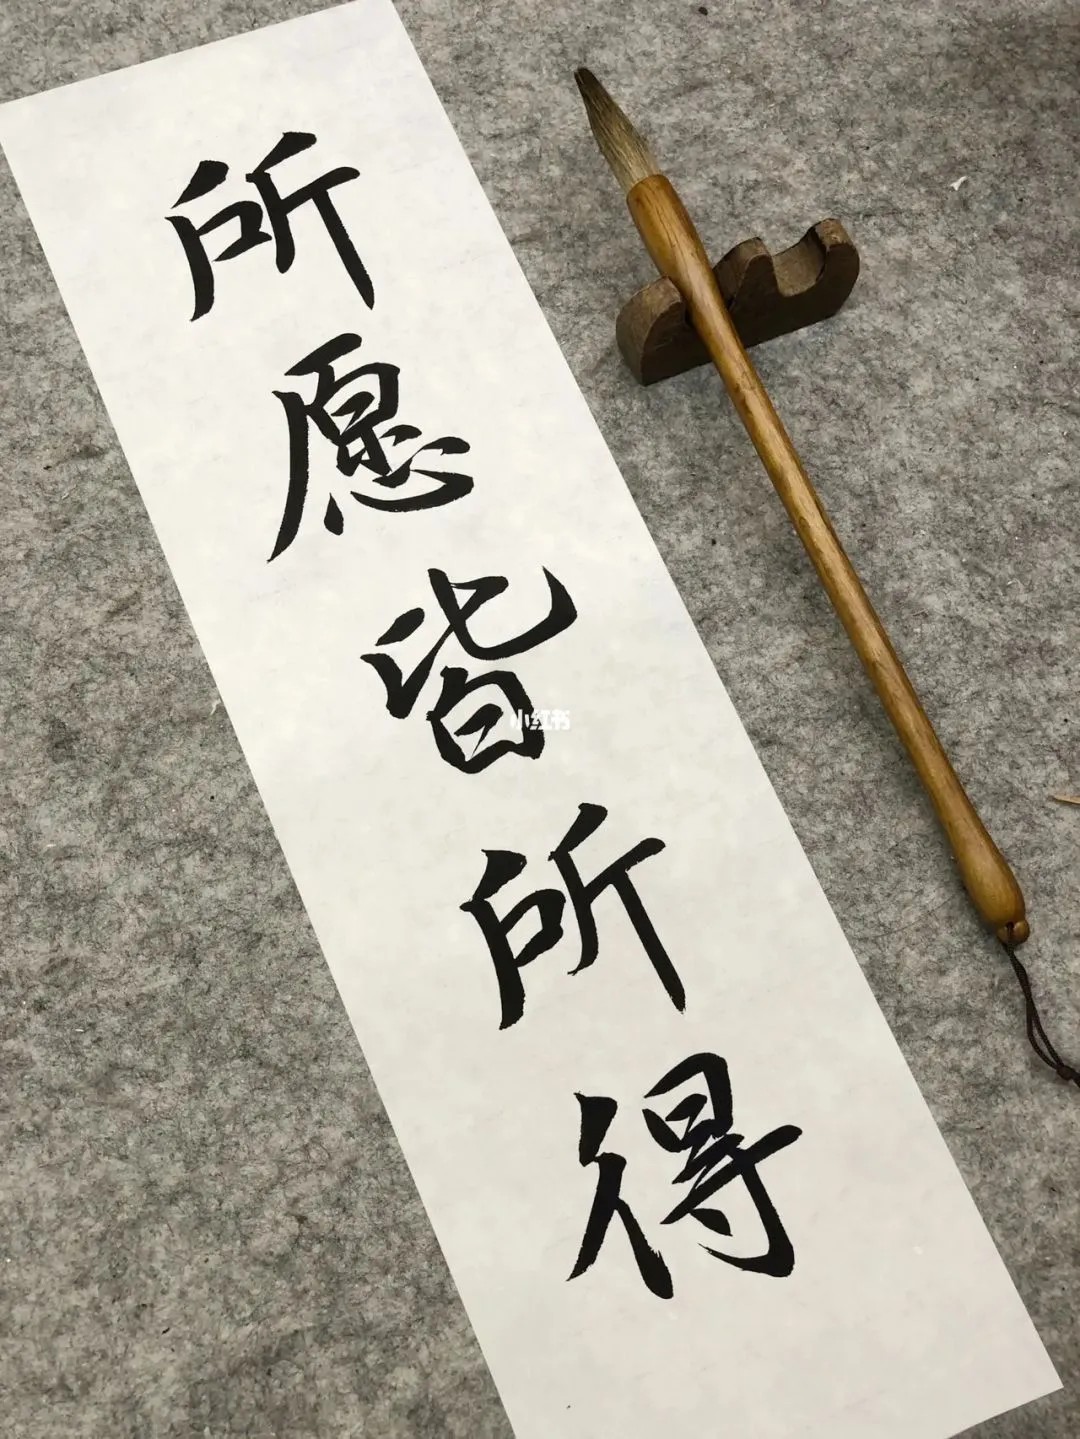 所愿皆所得
小红书